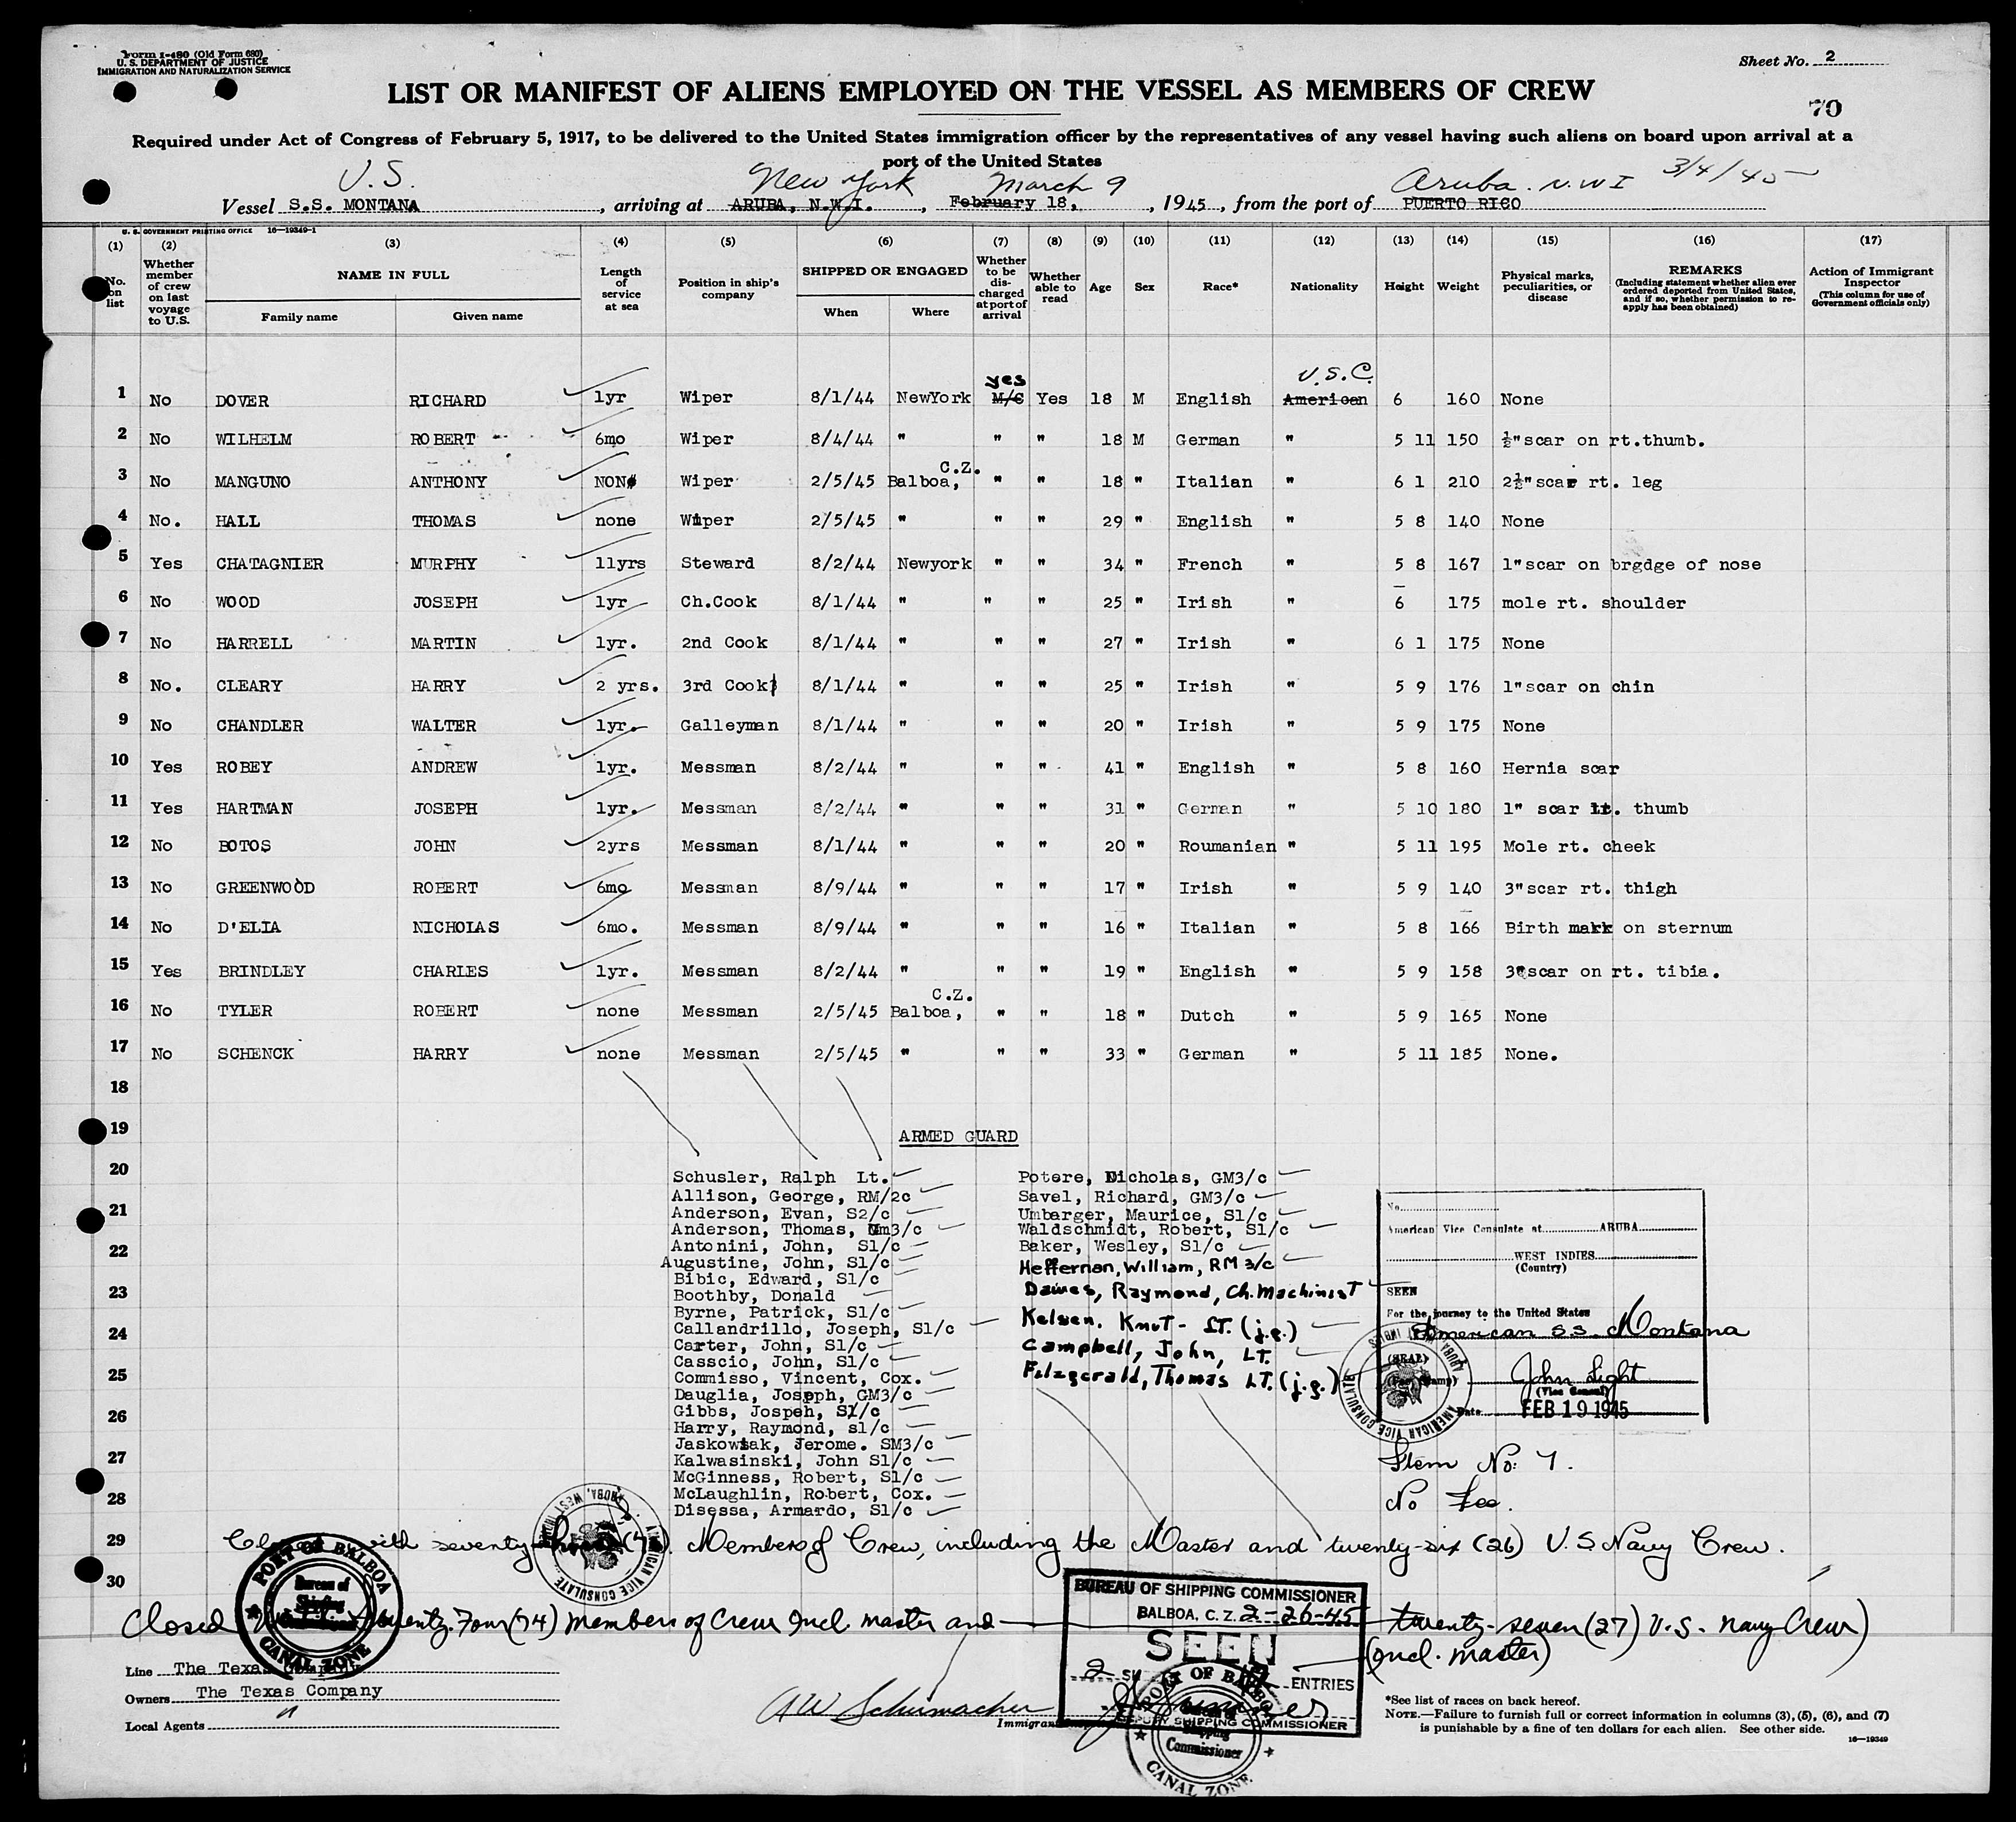 Form I-480 (Old Form 680)
U. S. DEPARTMENT OF JUSTICE
IMMIGRATION AND NATURALIZATION SERVICE
Sheet No. 2
LIST OR MANIFEST OF ALIENS EMPLOYED ON THE VESSEL AS MEMBERS OF CREW
70
Required under Act of Congress of February 5, 1917, to be delivered to the United States immigration officer by the representatives of any vessel having such aliens on board upon arrival at a
port of the United States
U.S. New York March 9 Aruba. N.W.I 3/4/45
Vessel S.S. MONTANA, arriving at ARUBA, N.W.I., February 18, 1945, from the port of PUERTO RICO
U. S. GOVERNMENT PRINTING OFFICE 16-19349-1
(1) (2) (3) (4) (5) (6) (7) (8) (9) (10) (11) (12) (13) (14) (15) (16) (17)
No. on list
Whether member of crew on last voyage to U.S.
NAME IN FULL
Family name Given name
Length of service at sea
Position in ship's company
SHIPPED OR ENGAGED
When Where
Whether to be discharged at port of arrival
Whether able to read
Age Sex Race* Nationality Height Weight
Physical marks, peculiarities, or disease
REMARKS
(Including statement whether alien ever ordered deported from United States, and if so, whether permission to reapply has been obtained)
Action of Immigrant Inspector
(This column for use of Government officials only)
yes U.S.C.
1 No DOVER RICHARD 1yr Wiper 8/1/44 NewYork M/C Yes 18 M English American 6 160 None
2 No WILHELM ROBERT 6mo Wiper 8/4/44 " " " 18 M German " 5 11 150 ½" scar on rt.thumb.
3 No MANGUNO ANTHONY NON Wiper 2/5/45 Balboa, C.Z. " " 18 " Italian " 6 1 210 2½" scar rt. leg
4 No. HALL THOMAS none Wiper 2/5/45 " " " 29 " English " 5 8 140 None
5 Yes CHATAGNIER MURPHY 11yrs Steward 8/2/44 Newyork " " 34 " French " 5 8 167 1" scar on brgdge of nose
6 No WOOD JOSEPH 1yr Ch.Cook 8/1/44 " " " 25 " Irish " 6 175 mole rt. shoulder
7 No HARRELL MARTIN 1yr. 2nd Cook 8/1/44 " " " 27 " Irish " 6 1 175 None
8 No. CLEARY HARRY 2 yrs. 3rd Cook 8/1/44 " " " 25 " Irish " 5 9 176 1" scar on chin
9 No CHANDLER WALTER 1yr. Galleyman 8/1/44 " " " 20 " Irish " 5 9 175 None
10 Yes ROBEY ANDREW 1yr. Messman 8/2/44 " " " 41 " English " 5 8 160 Hernia scar
11 Yes HARTMAN JOSEPH 1yr. Messman 8/2/44 " " " 31 " German " 5 10 180 1" scar lt. thumb
12 No BOTOS JOHN 2yrs Messman 8/1/44 " " " 20 " Roumanian " 5 11 195 Mole rt. cheek
13 No GREENWOOD ROBERT 6mo Messman 8/9/44 " " " 17 " Irish " 5 9 140 3" scar rt. thigh
14 No D'ELIA NICHOLAS 6mo. Messman 8/9/44 " " " 16 " Italian " 5 8 166 Birth mark on sternum
15 Yes BRINDLEY CHARLES 1yr. Messman 8/2/44 " " " 19 " English " 5 9 158 3" scar on rt. tibia.
16 No TYLER ROBERT none Messman 2/5/45 Balboa, C.Z. " " 18 " Dutch " 5 9 165 None
17 No SCHENCK HARRY none Messman 2/5/45 " " " 33 " German " 5 11 185 None.
18
19
ARMED GUARD
20
21
22
23
24
25
26
27
28
29
30
Schusler, Ralph Lt.
Allison, George, RM/2c
Anderson, Evan, S2/c
Anderson, Thomas, Gm3/c
Antonini, John, S1/c
Augustine, John, S1/c
Bibic, Edward, S1/c
Boothby, Donald
Byrne, Patrick, S1/c
Callandrillo, Joseph, S1/c
Carter, John, S1/c
Casscio, John, S1/c
Commisso, Vincent, Cox.
Dauglia, Joseph, GM3/c
Gibbs, Jospeh, S1/c
Harry, Raymond, s1/c
Jaskowiak, Jerome. SM3/c
Kalwasinski, John S1/c
McGinness, Robert, S1/c
McLaughlin, Robert, Cox.
Disessa, Armardo, S1/c
Potere, Nicholas, GM3/c
Savel, Richard, GM3/c
Umbarger, Maurice, S1/c
Waldschmidt, Robert, S1/c
Baker, Wesley, S1/c
Heffernan, William, RM 3/c
Dawes, Raymond, Ch. Machinist
Kelsen. Knut - LT. (j.g.)
Campbell, John, LT.
Fitzgerald, Thomas LT. (j.g.)
No.
American Vice Consulate at ARUBA
WEST INDIES
(Country)
SEEN
For the journey to the United States
American SS. Montana
(SEAL)
John Light
(Vice Consul)
Date FEB 19 1945
AMERICAN VICE CONSULATE
Item No: 7.
No Fee.
with seventy- Members of Crew, including the Master and twenty-six (26) U.S Navy Crew.
Closed Seventy-Four (74) members of Crew Incl. master and twenty-seven (27) U.S. Navy Crew)
(incl. master)
PORT OF BALBOA
Bureau of Shipping
CANAL ZONE
AMERICAN VICE CONSULATE
BUREAU OF SHIPPING COMMISSIONER
BALBOA, C. Z. 2-26-45
SEEN
2 ENTRIES
DEPUTY SHIPPING COMMISSIONER
PORT OF BALBOA
Commissioner
CANAL ZONE
Line The Texas Company
Owners The Texas Company
Local Agents "
AW Schumacher
Immigrant
*See list of races on back hereof.
NOTE.—Failure to furnish full or correct information in columns (3), (5), (6), and (7)
is punishable by a fine of ten dollars for each alien. See other side.
16—19349